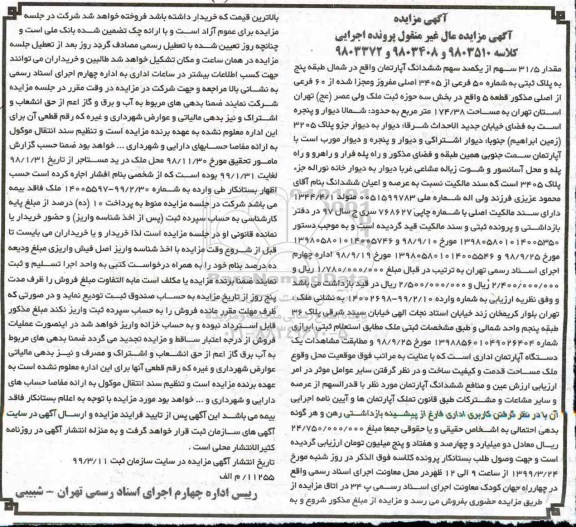 آگهی مزایده
آگهی مزایده مال غیر منقول پرونده اجرایی
کلاسه ۹۸۰۳۵۱۰ و ۹۸۰۳۴۰۸ و ۹۸۰۳۳۷۲
مقدار ۳۱/۵ سهم از یکصد سهم ششدانگ آپارتمان واقع در شمال طبقه پنج
به پلاک ثبتی به شماره ۵۰ فرعی از ۳۴۰۵ اصلی مفروز ومجزا شده از ۶۰ فرعی
از اصلی مذکور قطعه ۵ واقع در بخش سه حوزه ثبت ملک ولی عصر (عج) تهران
استان تهران به مساحت ۱۷۴/۳۸ متر مربع به حدود: شمالا دیوار و پنجره
است به فضای خیابان جدید الاحداث شرقا: دیوار به دیوار جزو پلاک ۳۲۰۵
(زمین ابراهیم) جنوبا: دیوار اشتراکی و دیوار و پنجره و دیوار مورب است با
آپارتمان سمت جنوبی همین طبقه و فضای مذکور و راه پله فرار و راهرو و راه
پله و محل آسانسور و شوت زباله مشاعی غربا دیوار به دیوار خانه نوراله جزء
پلاک ۳۴۰۵ است که سند مالکیت نسبت به عرصه و اعیان ششدانگ بنام آقای
محمود عزیزی فرزند ولی اله شماره ملی ۰۰۵۱۵۹۹۷۸۳ مولود ۱۳۴۴/۴/۱
دارای سند مالکیت اصلی با شماره چاپی ۷۶۸۶۲۷ سری ج سال ۹۷ در دفتر
بازداشتی و پرونده ثبتی و سند مالکیت قید گردیده است و به موجب دستور
۱۳۹۸۰۵۸۰۱۰۱۴۰۰۵۳۵۰ مورخ ۹۸/۹/۱۰ و ۱۳۹۸۰۵۸۰۱۰۱۴۰۰۵۷۴۶
مورخ ۹۸/۹/۲۵ و ۱۳۹۸۰۵۸۰۱۰۱۴۰۰۵۵۴۶ مورخ ۹۸/۹/۱۹ اداره چهارم
اجرای اسناد رسمی تهران به ترتیب در قبال مبلغ ۱/۷۸۰/۰۰۰/۰۰۰ ریال و
۲/۴۰۰/۰۰۰/۰۰۰ ریال و ۲/۵۰۰/۰۰۰/۰۰۰ ریال در قید بازداشت می باشد
و وفق نظریه ارزیابی به شماره وارده ۹۹/۲/۱۰–۱۴۰۰۲۶۹۸ به نشانی ملک:
تهران بلوار کریمخان زند خیابان استاد نجات الهی خیابان سپند شرقی پلاک ۳۶
طبقه پنجم واحد شمالی و طبق مشخصات ثبتی ملک مطابق استعلام ثبتی ابرازی
۱۳۹۸۸۵۶۰۱۰۴۹۰۲۶۴۰۴ مورخ ۹۸/۹/۲۵ و مطابق مشاهدات یک
دستگاه آپارتمان اداری است که با عنایت به مراتب فوق موقعیت محل وقوع
ملک مساحت قدمت و کیفیت ساخت و در نظر گرفتن سایر عوامل موثر در امر
ارزیابی ارزش عین و منافع ششدانگ آپارتمان مورد نظر با قدرالسهم از عرصه
و سایر مشاعات و مشترکات طبق قانون تملک آپارتمان ها و آیین نامه اجرایی
آن با در نظر گرفتن کاربری اداری فارغ از پیشینه بازداشتی رهن و هر گونه
بدهی احتمالی به اشخاص حقیقی و یا حقوقی جمعا مبلغ ۲۴/۷۵۰/۰۰۰/۰۰۰
ریال معادل دو میلیارد و چهارصد و هفتاد و پنج میلیون تومان ارزیابی گردیده
است و جهت وصول طلب بستانکار پرونده کلاسه فوق الذکر در روز شنبه مورخ
۱۳۹۹/۳/۲۴ از ساعت ۹ الی ۱۲ ظهردر محل معاونت اجرای اسناد رسمی واقع
در چهارراه جهان کودک معاونت اجرای اسناد رسمی پ ۳۴ در اتاق مزایده از
طریق مزایده حضوری بفروش می رسد و مزایده از مبلغ مذکور شروع و به
بالاترین قیمت که خریدار داشته باشد فروخته خواهد شد شرکت در جلسه
مزایده برای عموم آزاد است و با ارائه چک تضمین شده بانک ملی است و
چنانچه روز تعیین شده با تعطیل رسمی مصادف گردد روز بعد از تعطیل جلسه
مزایده در همان ساعت و مکان تشکیل خواهد شد طالبین و خریداران می توانند
جهت کسب اطلاعات بیشتر در ساعات اداری به اداره چهارم اجرای اسناد رسمی
به نشانی بالا مراجعه و جهت شرکت در مزایده در وقت مقرر در جلسه مزایده
شرکت نمایند ضمنا بدهی های مربوط به آب و برق و گاز اعم از حق انشعاب و
اشتراک و نیز بدهی مالیاتی و عوارض شهرداری و غیره که رقم قطعی آن برای
این اداره معلوم نشده به عهده برنده مزایده است و تنظیم سند انتقال موکول
به ارائه مفاصا حسابهای دارایی و شهرداری ... خواهد بود ضمنا حسب گزارش
مامور تحقیق مورخ ۹۸/۱۱/۳۰ محل ملک در ید مستاجر از تاریخ ۹۸/۱/۳۱
لغایت ۹۹/۱/۳۱ بوده است که از شخصی بنام افشار اجاره کرده است حسب
اظهار بستانکار طی وارده به شماره ۹۹/۲/۳۰–۱۴۰۰۵۵۹۷ ملک فاقد بیمه
می باشد شرکت در جلسه مزایده منوط به پرداخت ۱۰ (ده) درصد از مبلغ پایه
کارشناسی به حساب سپرده ثبت (پس از اخذ شناسه واریز) و حضور خریدار یا
نماده قانونی او در جلسه مزایده است لذا خریدار و یا خریداران می بایست تا
قبل از شروع وقت مزایده با اخذ شناسه واریز اصل فیش واریزی مبلغ ودیعه
ده درصد بنام خود را به همراه درخواست کتبی به واحد اجرا تسلیم و ثبت
نمایند ضمنا برنده مزایده یا مکلف است مابه التفاوت مبلغ فروش را ظرف مدت
پنج روز از تاریخ مزایده به حساب صندوق ثبت تودیع نماید و در صورتی که
ظرف مهلت مقرر مانده فروش را به حساب سپرده ثبت واریز نکند مبلغ مذکور
قابل استرداد نبوده و به حساب خزانه واریز خواهد شد در اینصورت عملیات
فروش از درجه اعتبار ساقط و مزایده تجدید می گردد ضمنا بدهی های مربوط
به آب برق گاز اعم از حق انشعاب و اشتراک و مصرف و نیز بدهی مالیاتی
عوارض شهرداری و غیره که رقم قطعی آنها برای این اداره معلوم نشده است به
عهده برنده مزایده است و تنظیم سند انتقال موکول به ارائه مفاصا حساب های
دارایی و شهرداری و ... خواهد بود مورد مزایده با توجه به اعلام بستانکار فاقد
بیمه می باشد این آگهی پس از تایید فرایند مزایده و ارسال آگهی در سایت
آگهی های سازمان ثبت قرار خواهد گرفت و به منزله انتشار آگهی در روزنامه
کثیرالانتشار محلی است .
تاریخ انتشار آگهی مزایده در سایت سازمان ثبت ۹۹/۳/۱۱
۱۱۲۵۵/ م الف
رییس اداره چهارم اجرای اسناد رسمی تهران – شبیبی